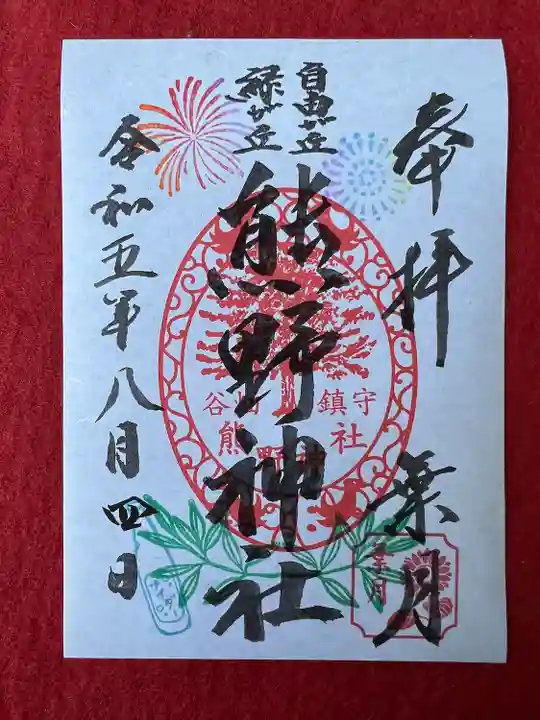 奉拝
葉月
自由が丘
緑が丘
熊野神社
谷 鎮守
熊野神社
葉月
令和五年八月四日